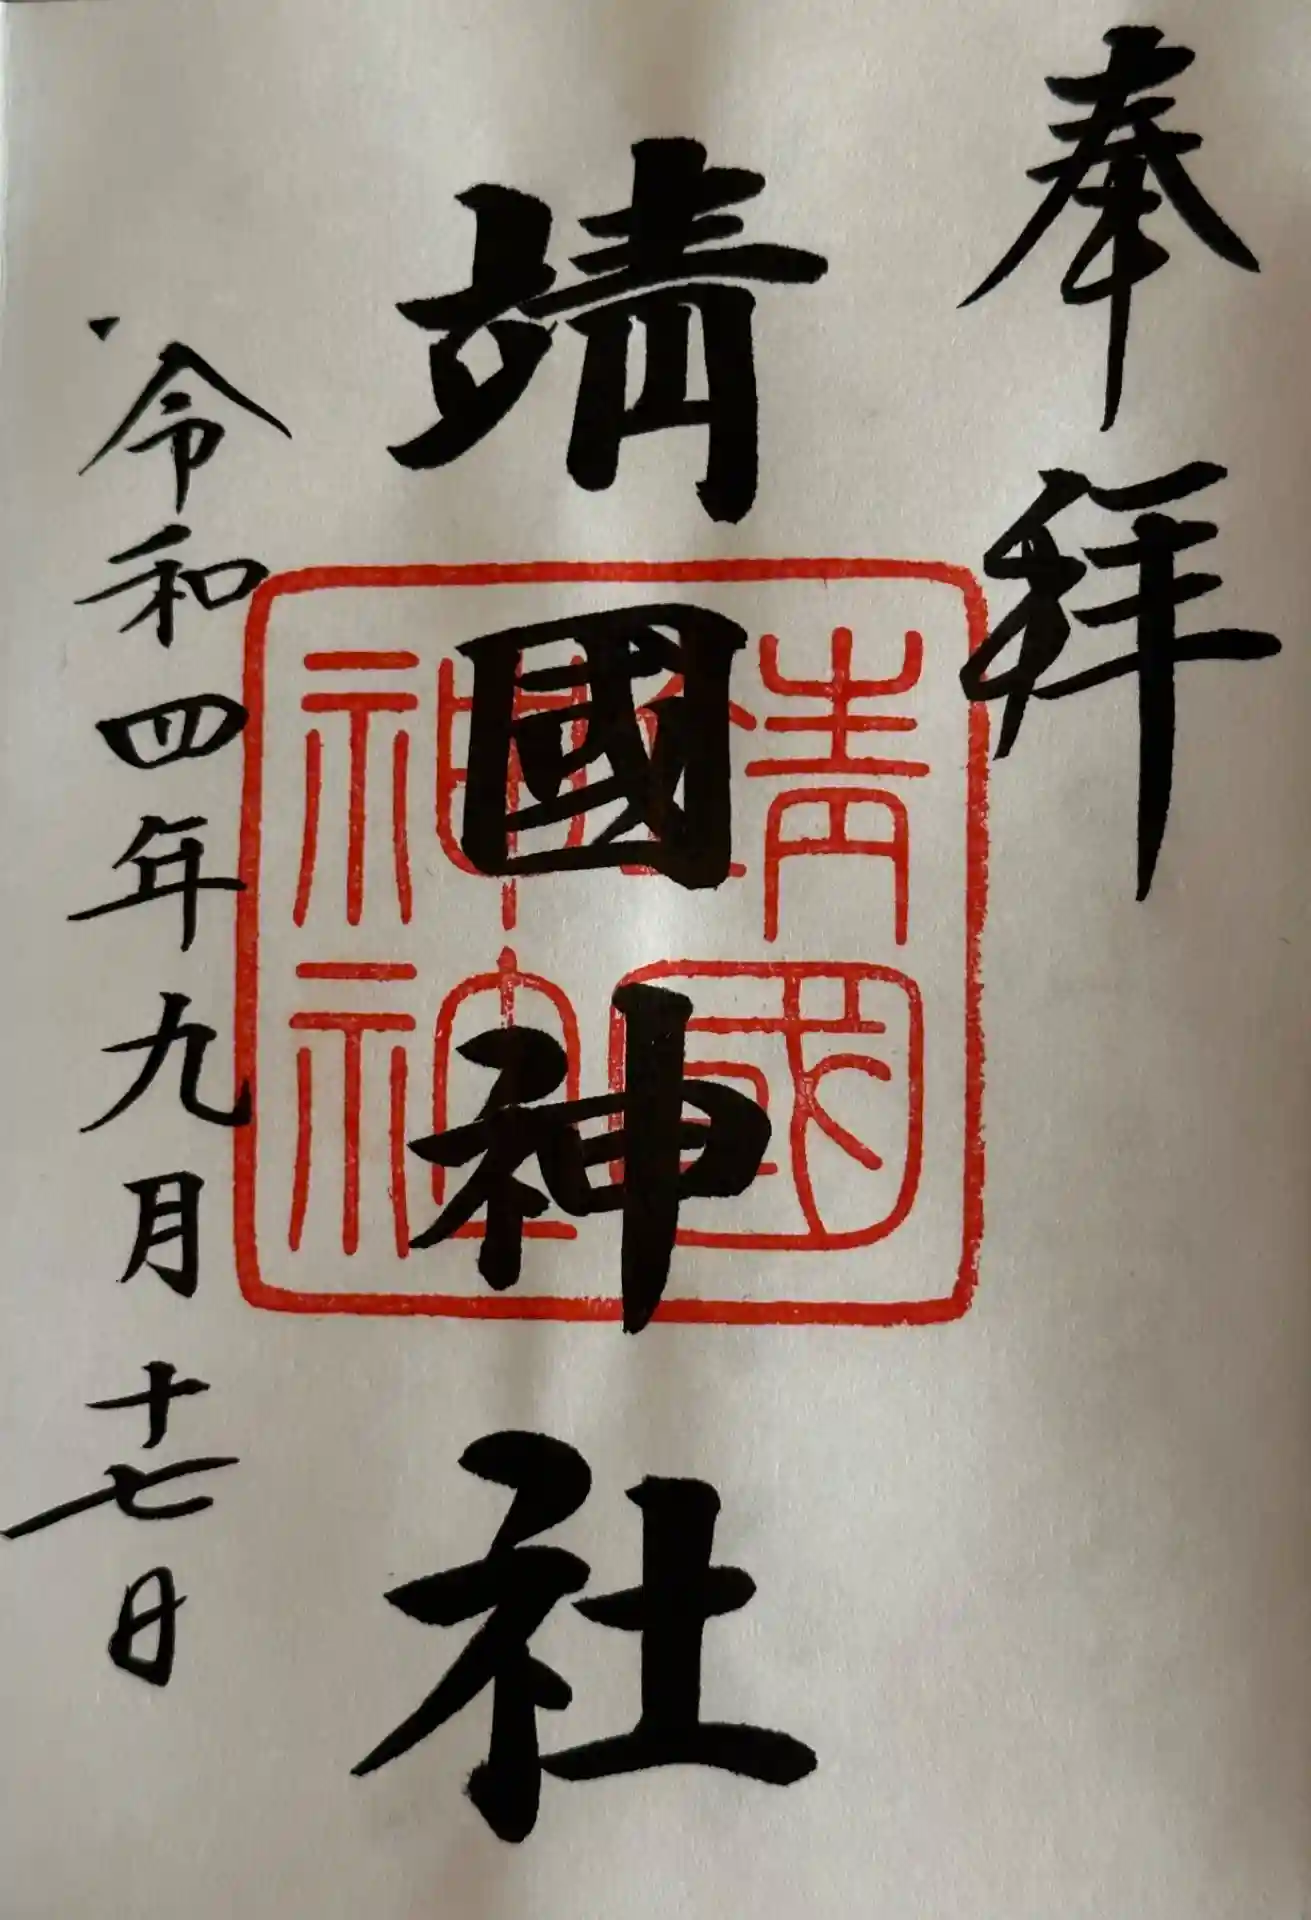 奉拜
靖國神社
靖國
神社
令和四年九月十七日